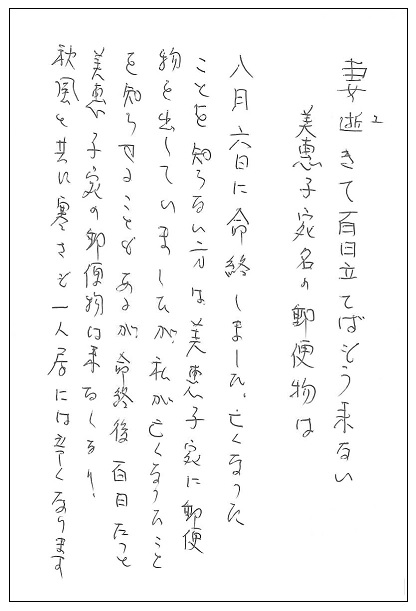 妻逝きて百日立てばそう来ない
美恵子宛名の郵便物は
八月六日に命終しました。亡くなった
ことを知らない方は美恵子宛に郵便
物を出していましたが、私が亡くなったこと
を知らせることもあるが、命終後百日たつと
美恵子宛の郵便物は来なくなり、
秋風と共に寒さも一人居には辛くなります